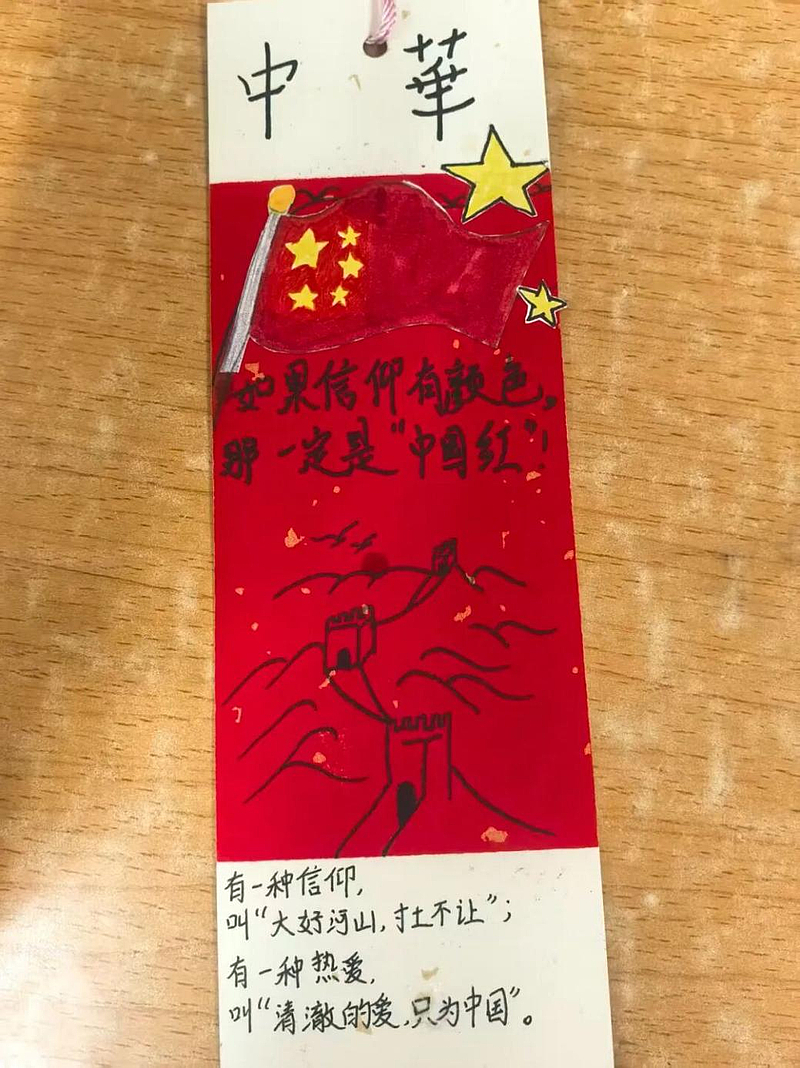 中 華
如果信仰有颜色,
那一定是“中国红”!
有一种信仰,
叫“大好河山,寸土不让”;
有一种热爱,
叫“清澈的爱,只为中国”。